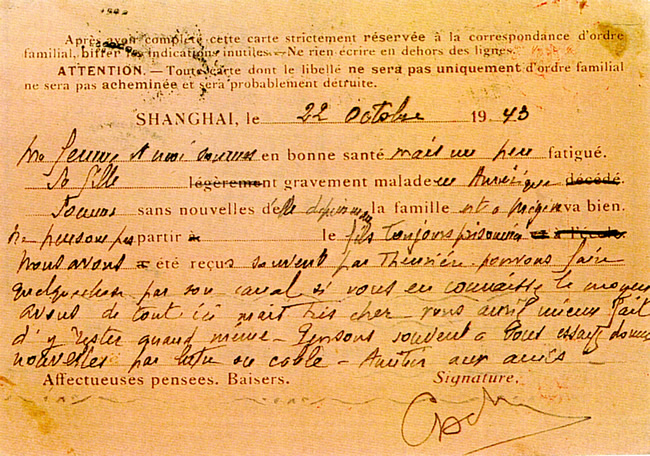 Après avoir complété cette carte strictement réservée à la correspondance d'ordre
familial, biffer les indications inutiles. — Ne rien écrire en dehors des lignes.
ATTENTION. — Toute carte dont le libellé ne sera pas uniquement d'ordre familial
ne sera pas acheminée et sera probablement détruite.
SHANGHAI, le 22 octobre 1943
ma femme et moi sommes en bonne santé mais un peu fatigué.
légèrement gravement malade en Amérique décédé.
Sommes sans nouvelles d'elle la famille va bien.
ne pensons pas partir à le fils toujours prisonnier
nous avons été reçus souvent par pouvons faire
par son canal si vous en connaissez le moyen
avons de tout ici mais très cher vous avez mieux fait
d'y rester quand même - Pensons souvent à vous essayez donner
nouvelles par lettre ou cable - Amitiés aux amis -
Affectueuses pensees. Baisers. Signature.